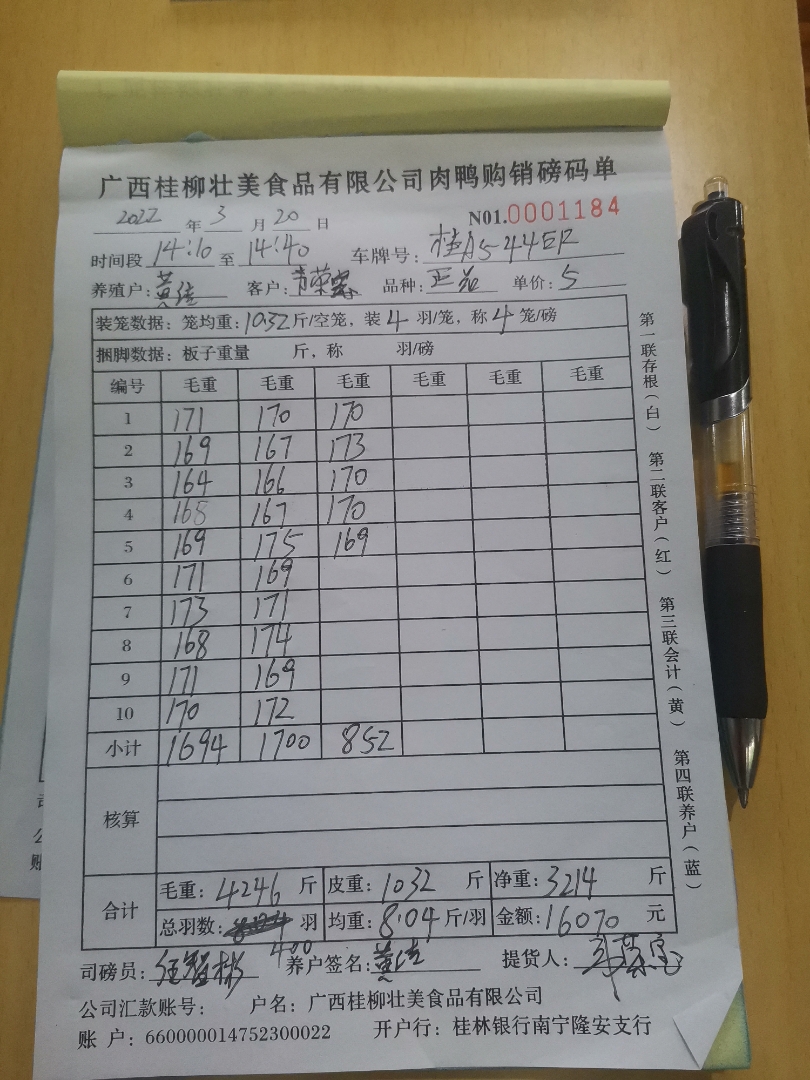 广西桂柳壮美食品有限公司肉鸭购销磅码单
2022 年 3 月 20 日 N01.0001184
时间段 14:10 至 14:40 车牌号: 桂A544ER
养殖户: 黄 客户: 荣 品种: 正 单价: 5
装笼数据: 笼均重: 10.32 斤/空笼, 装 4 羽/笼, 称 4 笼/磅
捆脚数据: 板子重量 斤, 称 羽/磅
编号 毛重 毛重 毛重 毛重 毛重 毛重
1 171 170 170
2 169 167 173
3 164 166 170
4 168 167 170
5 169 175 169
6 171 169
7 173 171
8 168 174
9 171 169
10 170 172
小计 1694 1700 852
核算
合计
毛重: 4246 斤 皮重: 1032 斤 净重: 3214 斤
总羽数: 羽 均重: 8.04 斤/羽 金额: 16070 元
400
司磅员: 养户签名: 黄 提货人:
公司汇款账号: 户名: 广西桂柳壮美食品有限公司
账 户: 660000014752300022 开户行: 桂林银行南宁隆安支行
第一联存根(白) 第二联客户(红) 第三联会计(黄) 第四联养户(蓝)